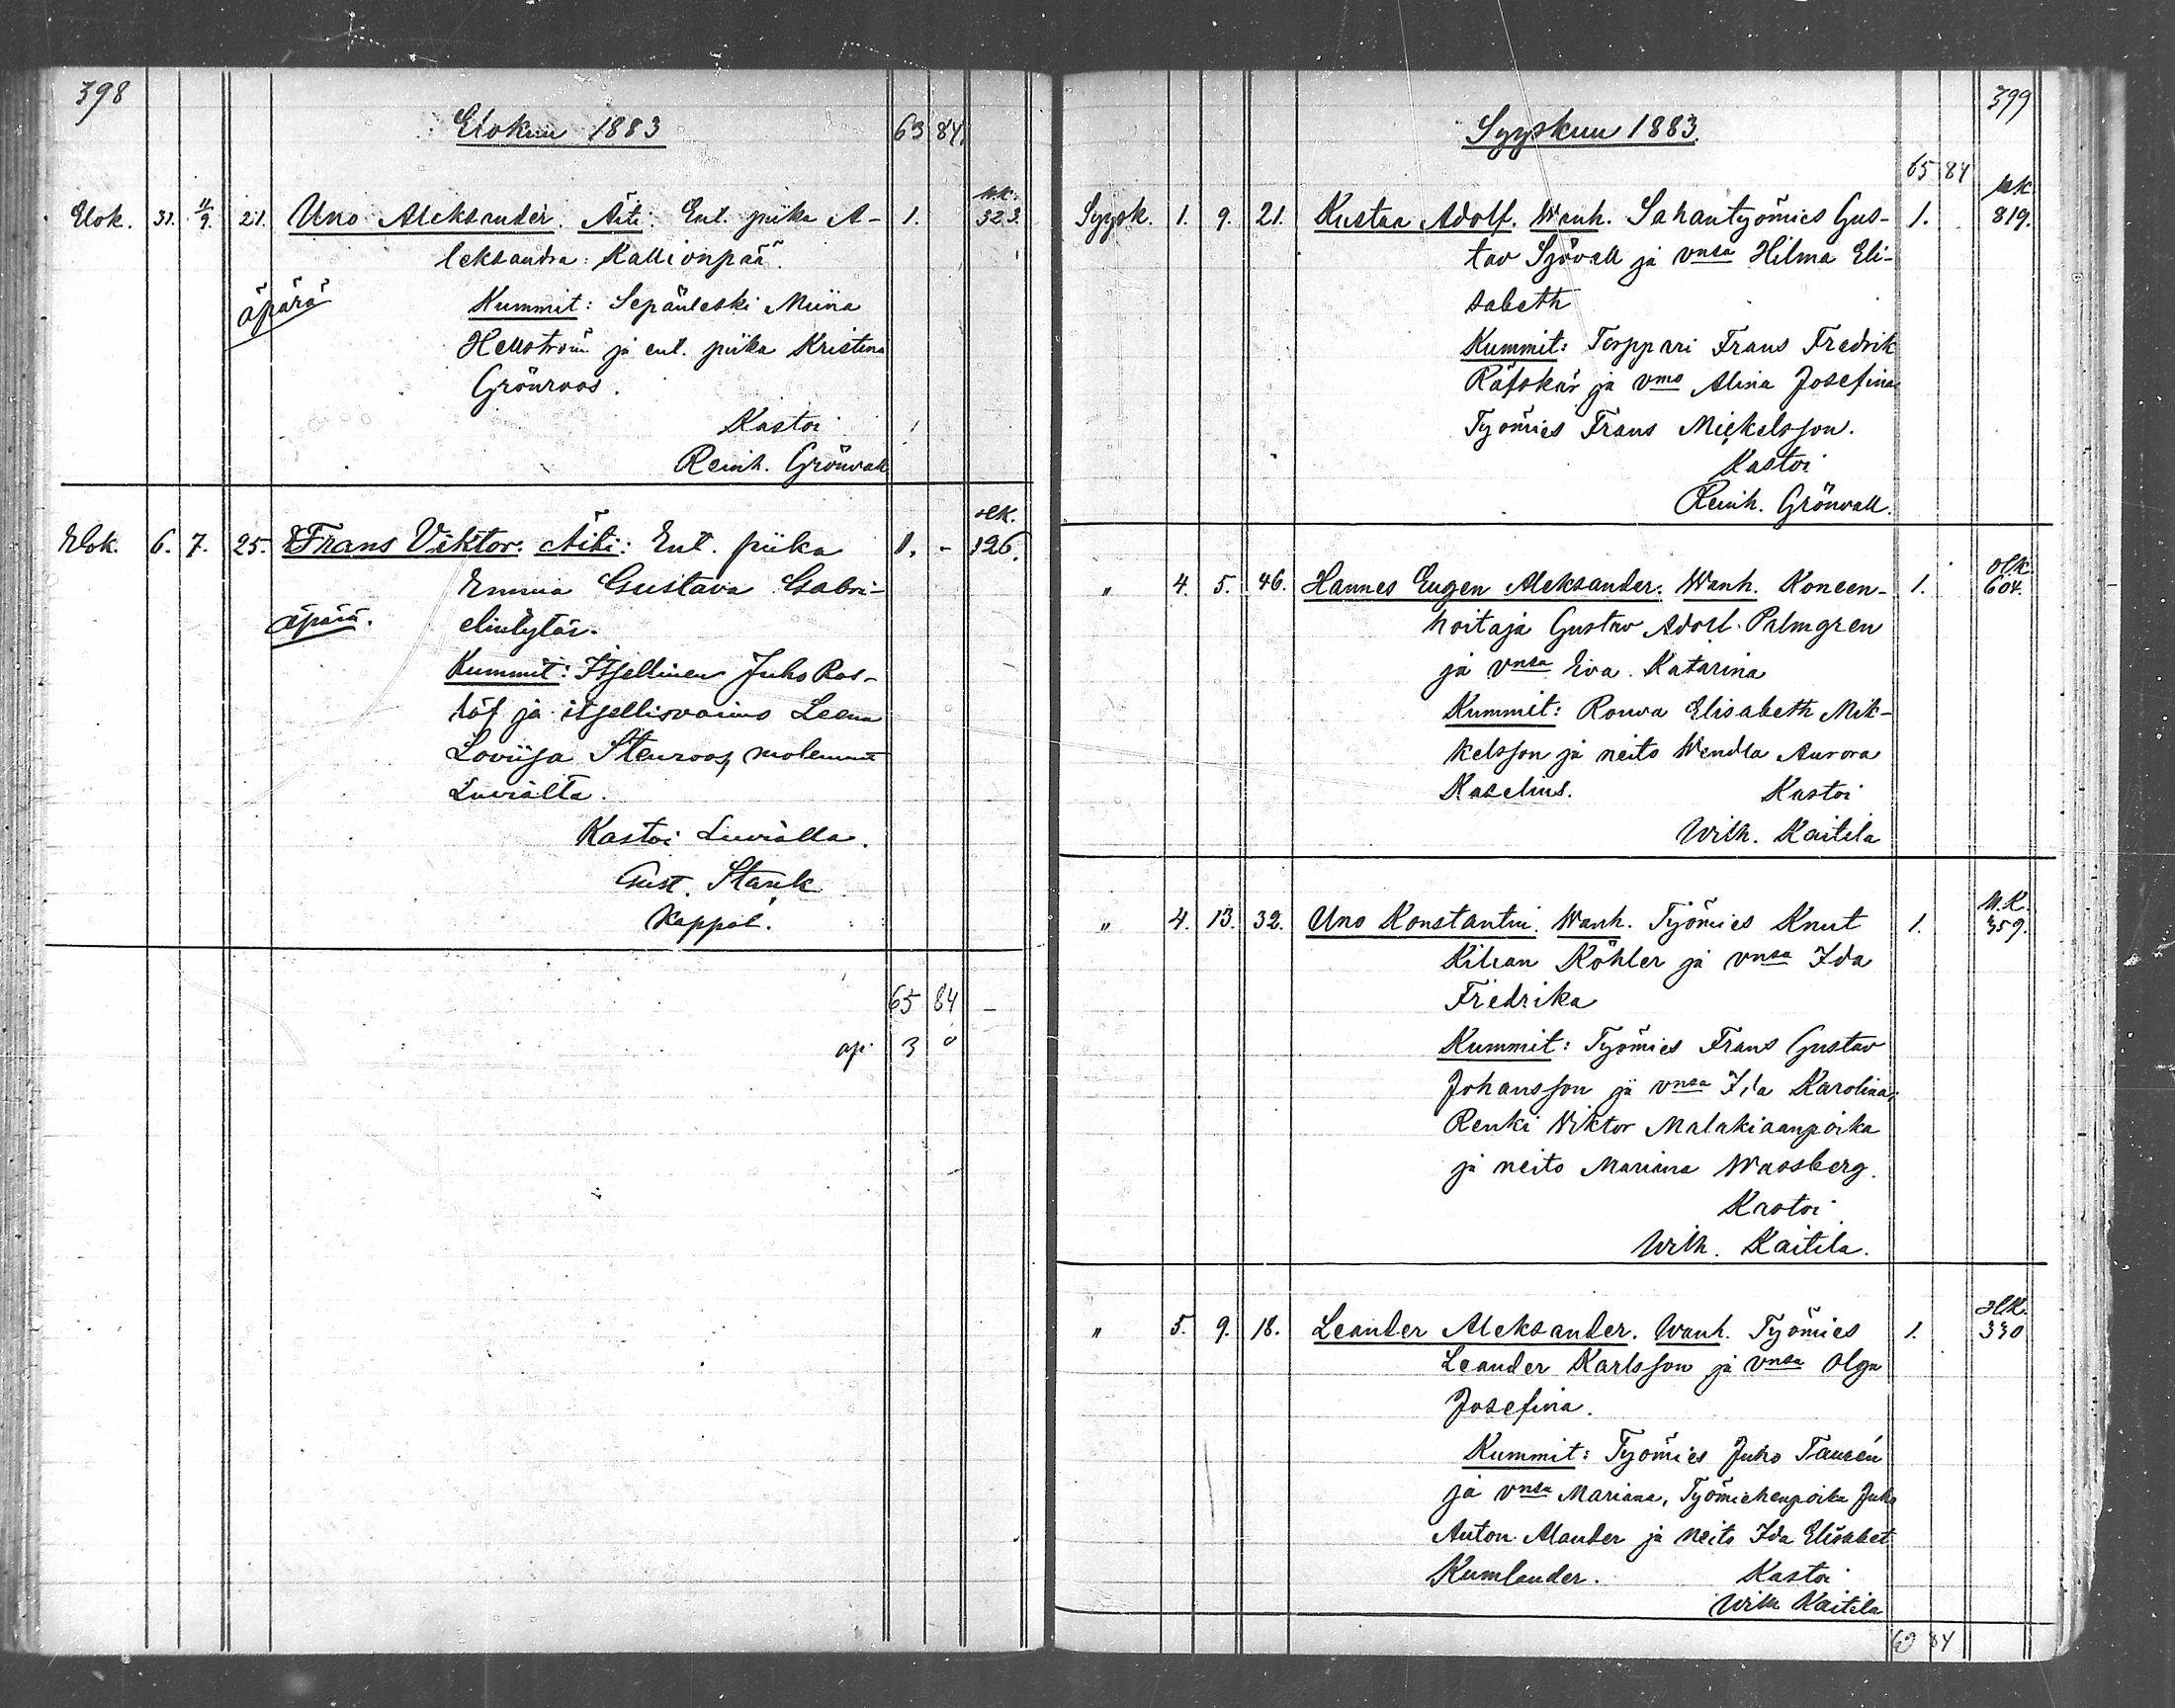 398
Elokuu 1883 63 84
Elok. 31. 11/9. 21. Uno Aleksander. Äiti: Ent. piika A- 1. 323.
leksandra Kallionpää.
äpärä
Kummit: Sepänleski Miina
Hellström ja ent. piika Kristina
Grönroos.
Kastoi
Reinh. Grönvall
Elok. 6. 7. 25. Frans Viktor. Äiti: Ent. piika 1. - 126.
Emma Gustava Gabri-
elintytär.
äpärä.
Kummit: Itsellinen Juho Ros-
löf ja itsellisvaimo Leena
Loviisa Stenroos, molemmat
Luvialta.
Kastoi Luvialla.
Gust. Stank
Kappal.
65 84 -
äp. 3 0
399
Syyskuu 1883.
65 84
Syysk. 1. 9. 21. Kustaa Adolf. Wanh. Sahantyömies Gus- 1. 819.
tav Sjövall ja vnsa Hilma Eli-
sabeth
Kummit: Torppari Frans Fredrik
Räfskär ja vmo Alina Josefina
Työmies Frans Mickelsson.
Kastoi
Reinh. Grönvall.
" 4. 5. 46. Hannes Eugen Aleksander. Wanh. Koneen- 1. 604.
hoitaja Gustav Adolf Palmgren
ja vnsa Eva Katarina
Kummit: Rouva Elisabeth Mik-
kelsson ja neito Wendla Aurora
Kaselius. Kastoi
Wilh. Kaitila
" 4. 13. 32. Uno Konstantin. Wanh. Työmies Knut 1. 359.
Kilian Köhler ja vnsa Ida
Fredrika
Kummit: Työmies Frans Gustav
Johansson ja vnsa Ida Karolina;
Renki Viktor Malakiaanpoika
ja neito Mariana Wassberg.
Kastoi
Wilh. Kaitila.
" 5. 9. 18. Leander Aleksander. Wanh. Työmies 1. 330
Leander Karlsson ja vnsa Olga
Josefina.
Kummit: Työmies Juho Taurén
ja vnsa Mariana, Työmiehenpoika Juho
Anton Alander ja neito Ida Elisabet
Kumlander. Kastoi
Wilh Kaitila
84